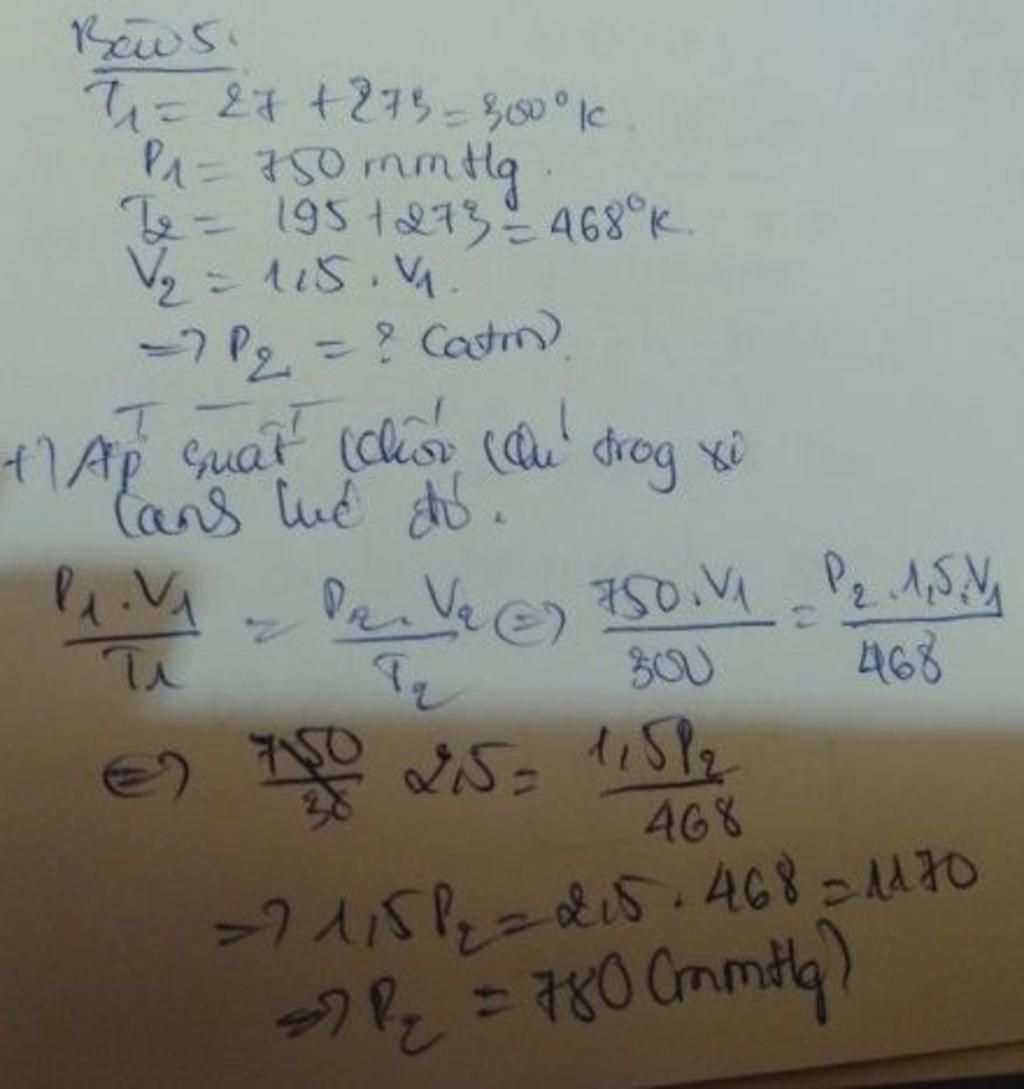 Bài 5.
T₁ = 27 + 273 = 300°K.
P₁ = 750 mmHg.
T₂ = 195 + 273 = 468°K.
V₂ = 1,5 . V₁.
=> P₂ = ? (atm).
+) Áp suất khối khí trog xi
lanh lúc đó.
P₁.V₁/T₁ = P₂.V₂/T₂ <=> 750.V₁/300 = P₂.1,5.V₁/468
<=> 2,5 = 1,5P₂/468
=> 1,5P₂ = 2,5 . 468 = 1170
=> P₂ = 780 (mmHg)